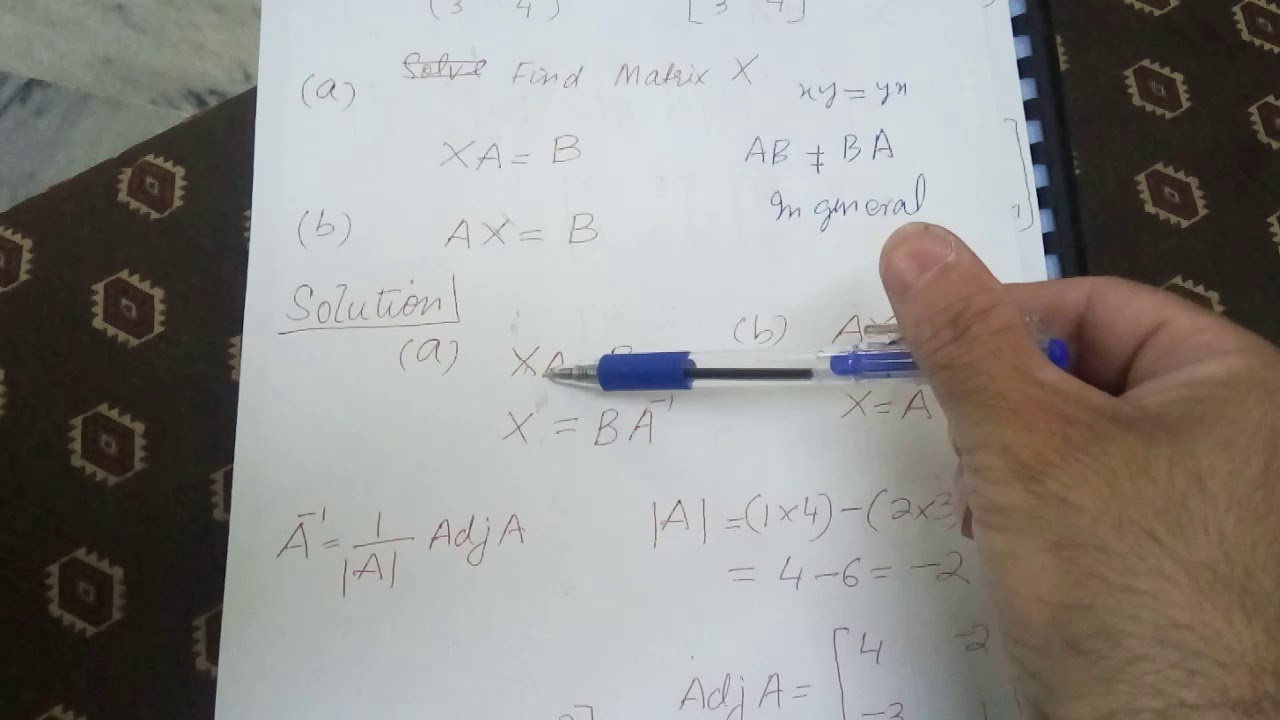 (3 4) [3 4]
(a) Solve Find Matrix X
xy = yx
XA = B
AB ≠ BA
In general
(b) AX = B
Solution
(a) XA
X = BA⁻¹
(b) AX
X = A
A⁻¹ = 1/|A| Adj A
|A| = (1×4) − (2×3
= 4 − 6 = −2
Adj A = [4 −2
−3